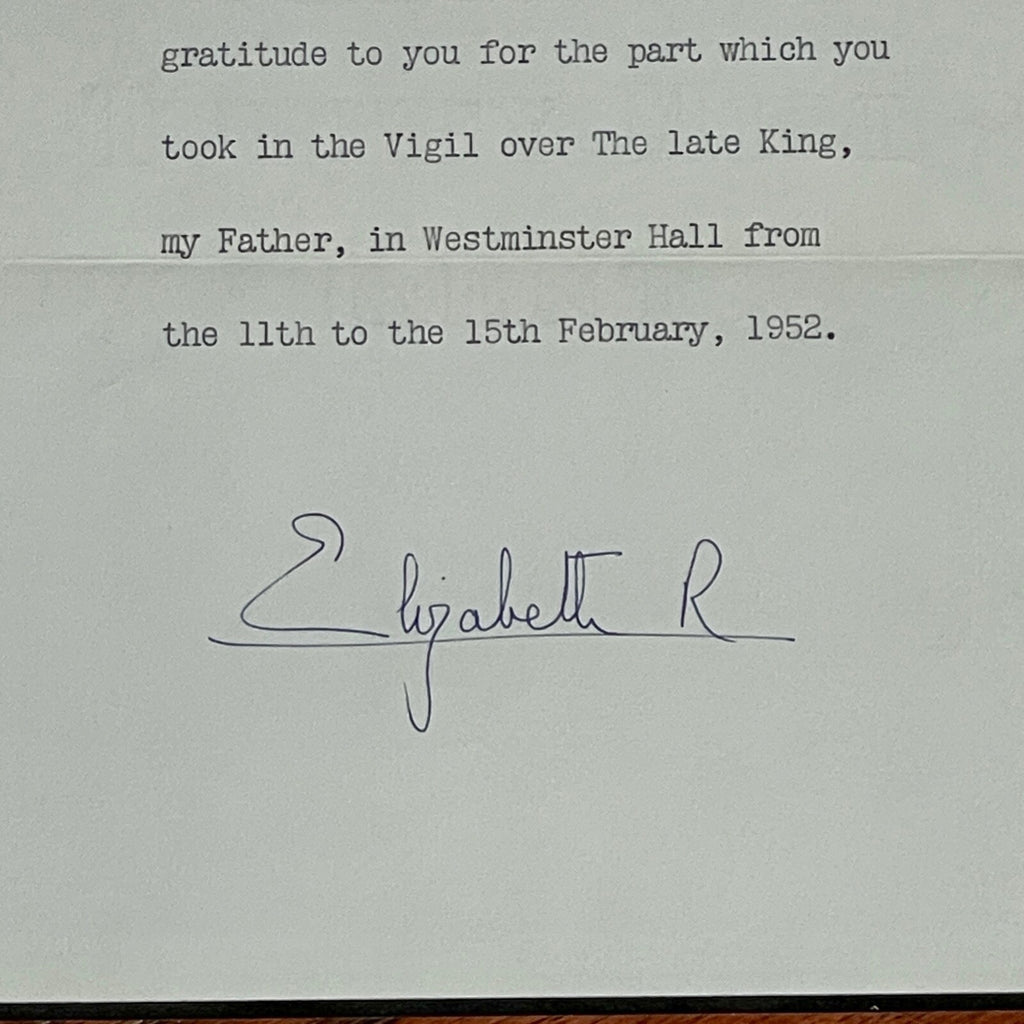 gratitude to you for the part which you
took in the Vigil over The late King,
my Father, in Westminster Hall from
the 11th to the 15th February, 1952.
Elizabeth R